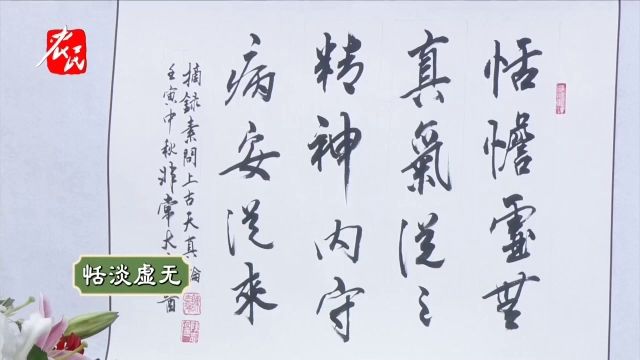 农民
恬憺虛無
真氣從之
精神內守
病安從來
摘錄素問上古天真論
壬寅中秋非常大
恬淡虚无